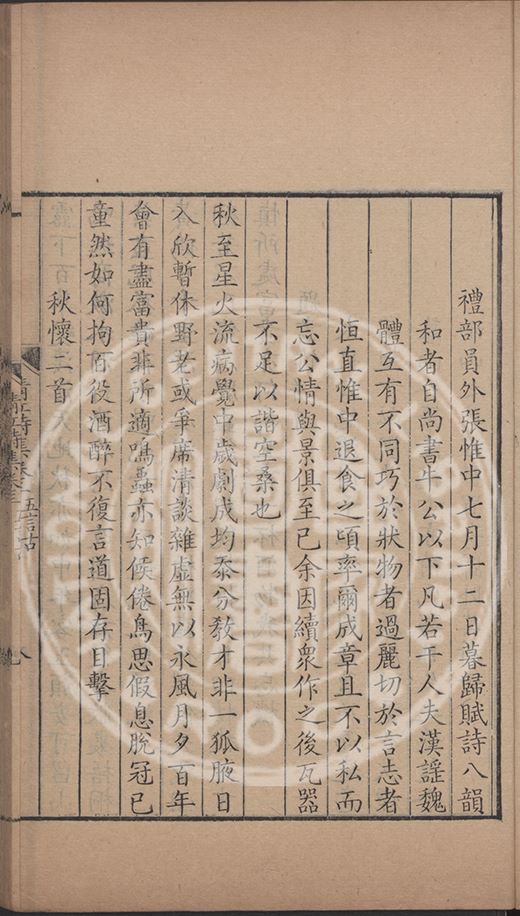 禮部員外張惟中七月十二日暮歸賦詩八韻
和者自尚書牛公以下凡若干人夫漢謡魏
體互有不同巧於狀物者過麗切於言志者
恒直惟中退食之頃率爾成章且不以私而
忘公情與景俱至已余因續衆作之後瓦器
不足以諧空桑也
秋至星火流病覺中歲劇成均忝分敎才非一狐腋日
入欣暫休野老或爭席清談雜虛無以永風月夕百年
會有盡富貴非所適鳴蟲亦知候倦鳥思假息脫冠已
童然如何拘百役酒醉不復言道固存目擊
秋懷二首
五言古
八